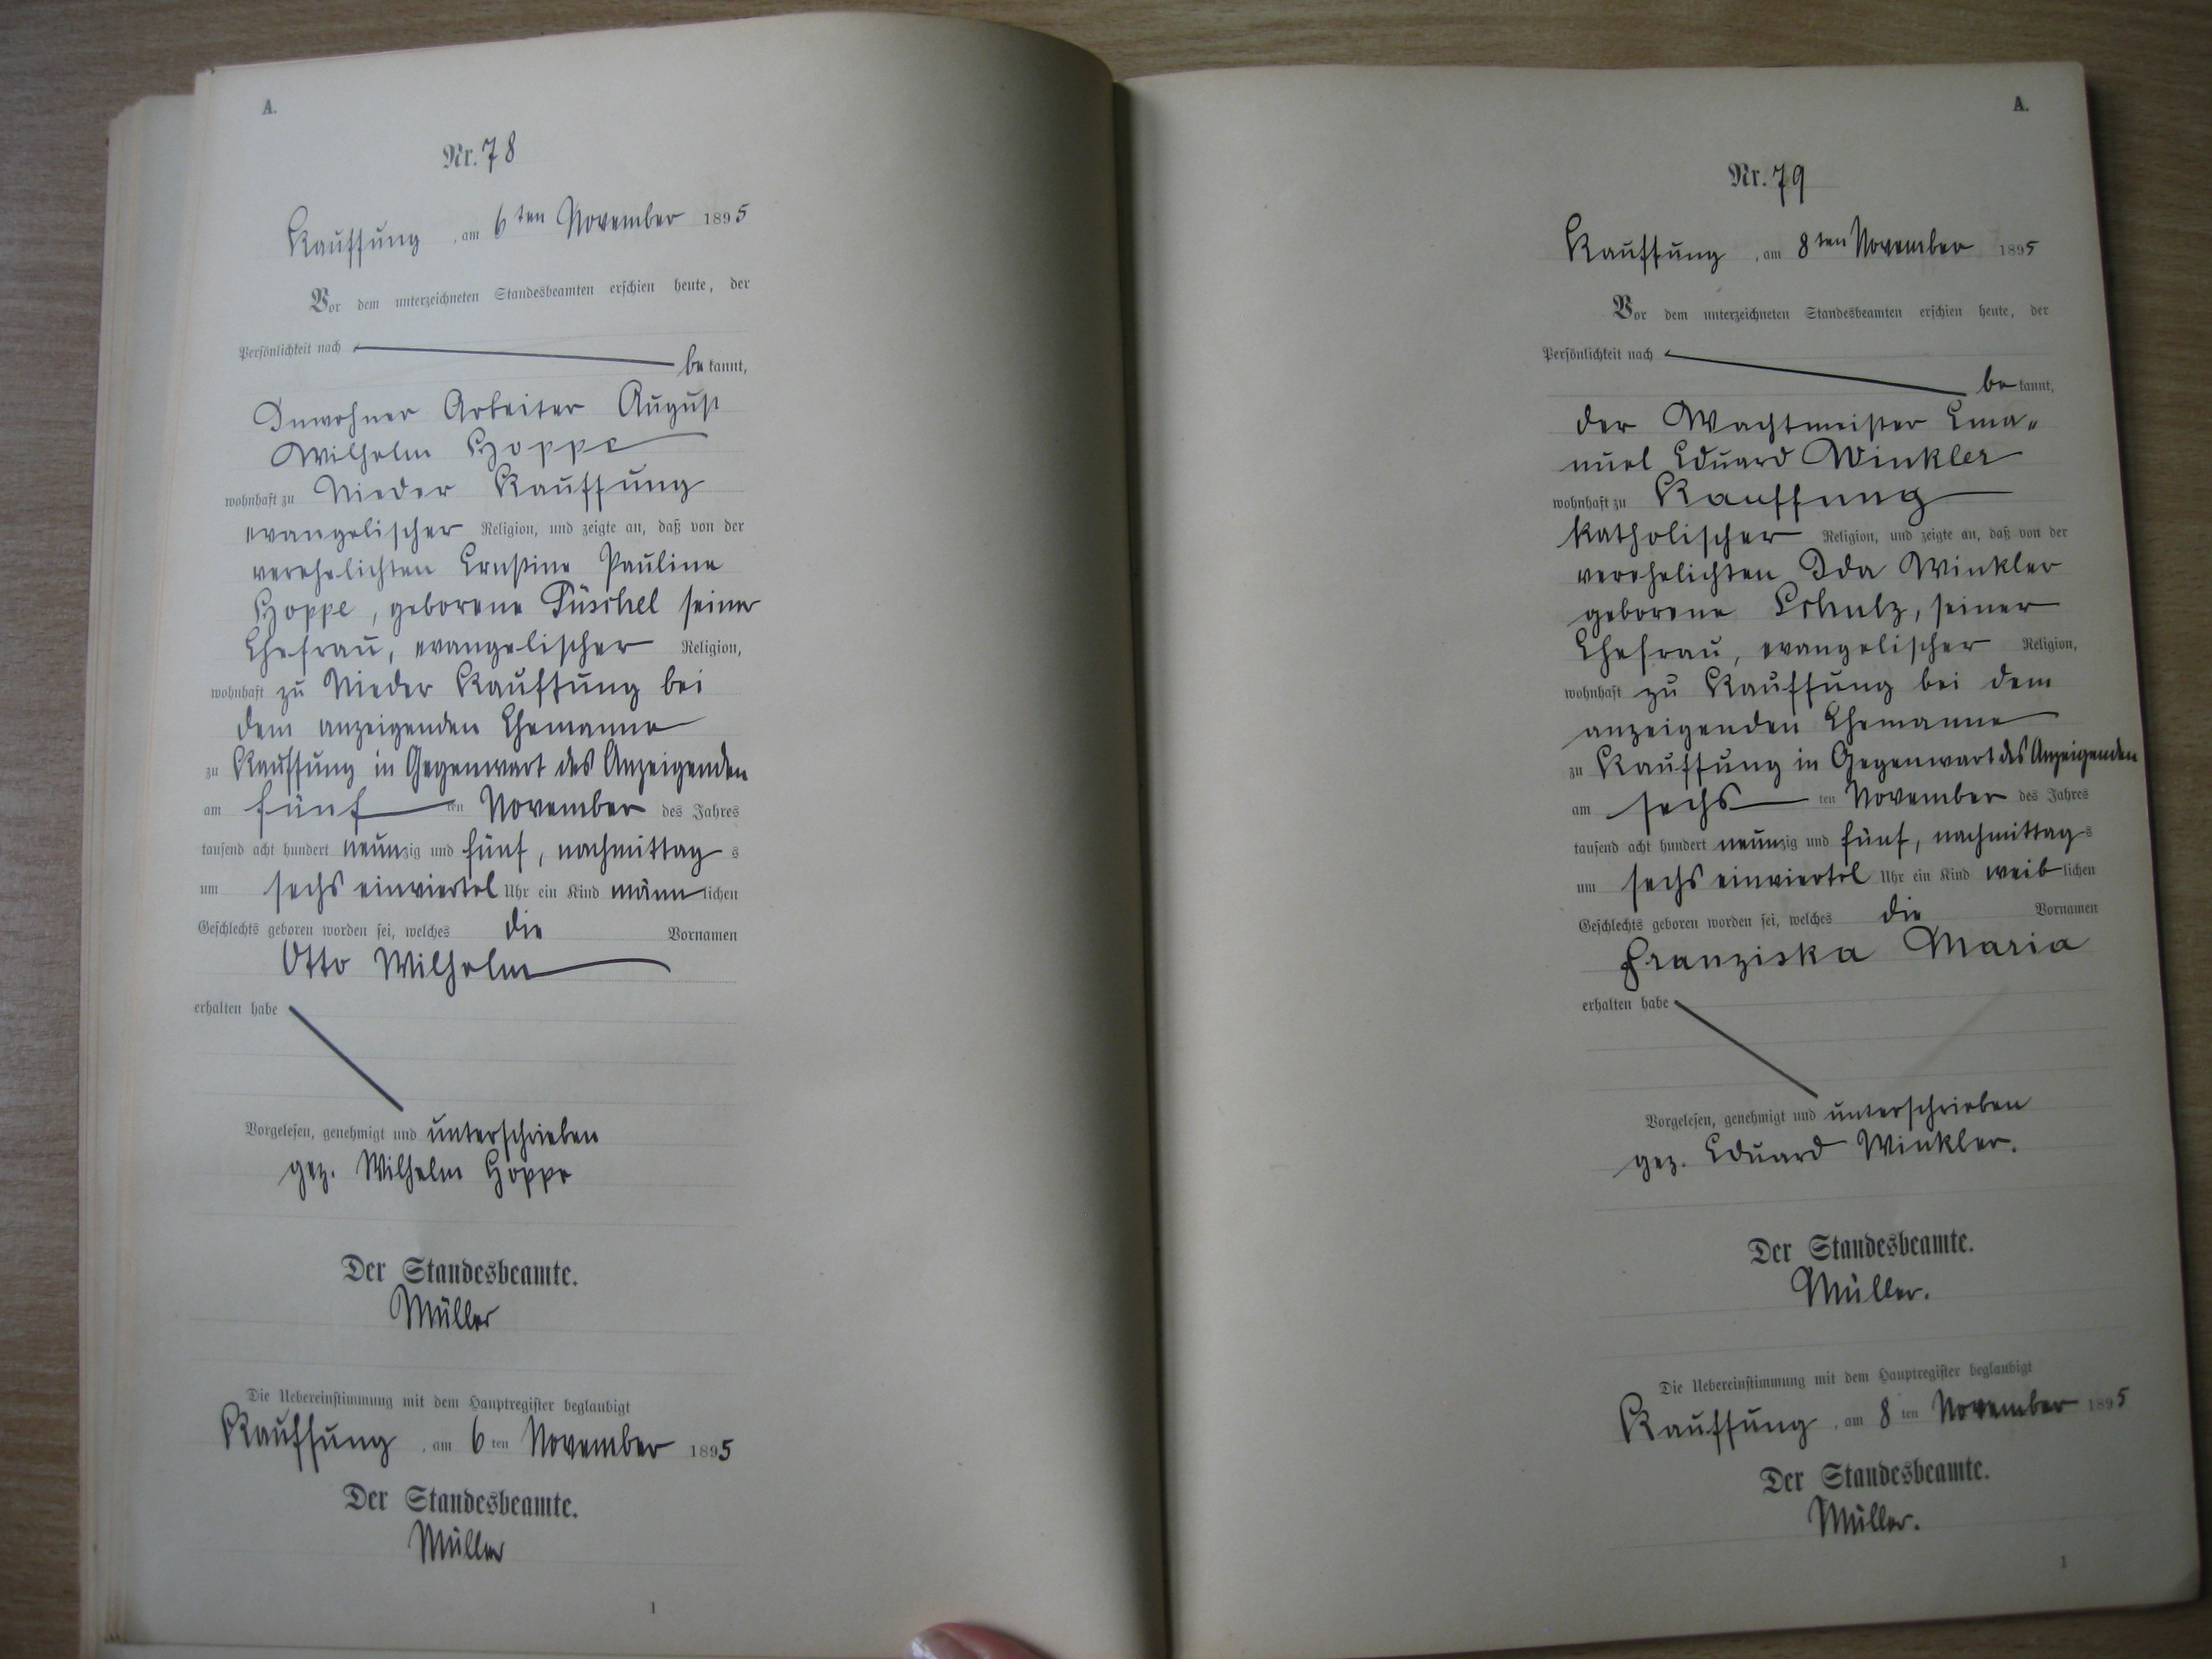 A.
Nr. 78
Kauffung, am 6ten November 1895
Vor dem unterzeichneten Standesbeamten erschien heute, der
Persönlichkeit nach
be kannt,
Inwohner Arbeiter August
Wilhelm Hoppe
wohnhaft zu Nieder Kauffung
evangelischer Religion, und zeigte an, daß von der
verehelichten Ernstine Pauline
Hoppe, geborene Püschel seiner
Ehefrau, evangelischer Religion,
wohnhaft zu Nieder Kauffung bei
dem anzeigenden Ehemanne
zu Kauffung in Gegenwart des Anzeigenden
am fünf ten November des Jahres
tausend acht hundert neunzig und fünf, nachmittag s
um sechs einviertel Uhr ein Kind männ lichen
Geschlechts geboren worden sei, welches die Vornamen
Otto Wilhelm
erhalten habe
Vorgelesen, genehmigt und unterschrieben
gez. Wilhelm Hoppe
Der Standesbeamte.
Müller
Die Uebereinstimmung mit dem Hauptregister beglaubigt
Kauffung, am 6 ten November 1895
Der Standesbeamte.
Müller
1
A.
Nr. 79
Kauffung, am 8ten November 1895
Vor dem unterzeichneten Standesbeamten erschien heute, der
Persönlichkeit nach
be kannt,
der Wachtmeister Ema„
nuel Eduard Winkler
wohnhaft zu Kauffung
katholischer Religion, und zeigte an, daß von der
verehelichten Ida Winkler
geborene Scholz, seiner
Ehefrau, evangelischer Religion,
wohnhaft zu Kauffung bei dem
anzeigenden Ehemanne
zu Kauffung in Gegenwart des Anzeigenden
am sechs ten November des Jahres
tausend acht hundert neunzig und fünf, nachmittag s
um sechs einviertel Uhr ein Kind weib lichen
Geschlechts geboren worden sei, welches die Vornamen
Franziska Maria
erhalten habe
Vorgelesen, genehmigt und unterschrieben
gez. Eduard Winkler.
Der Standesbeamte.
Müller.
Die Uebereinstimmung mit dem Hauptregister beglaubigt
Kauffung, am 8 ten November 1895
Der Standesbeamte.
Müller.
1